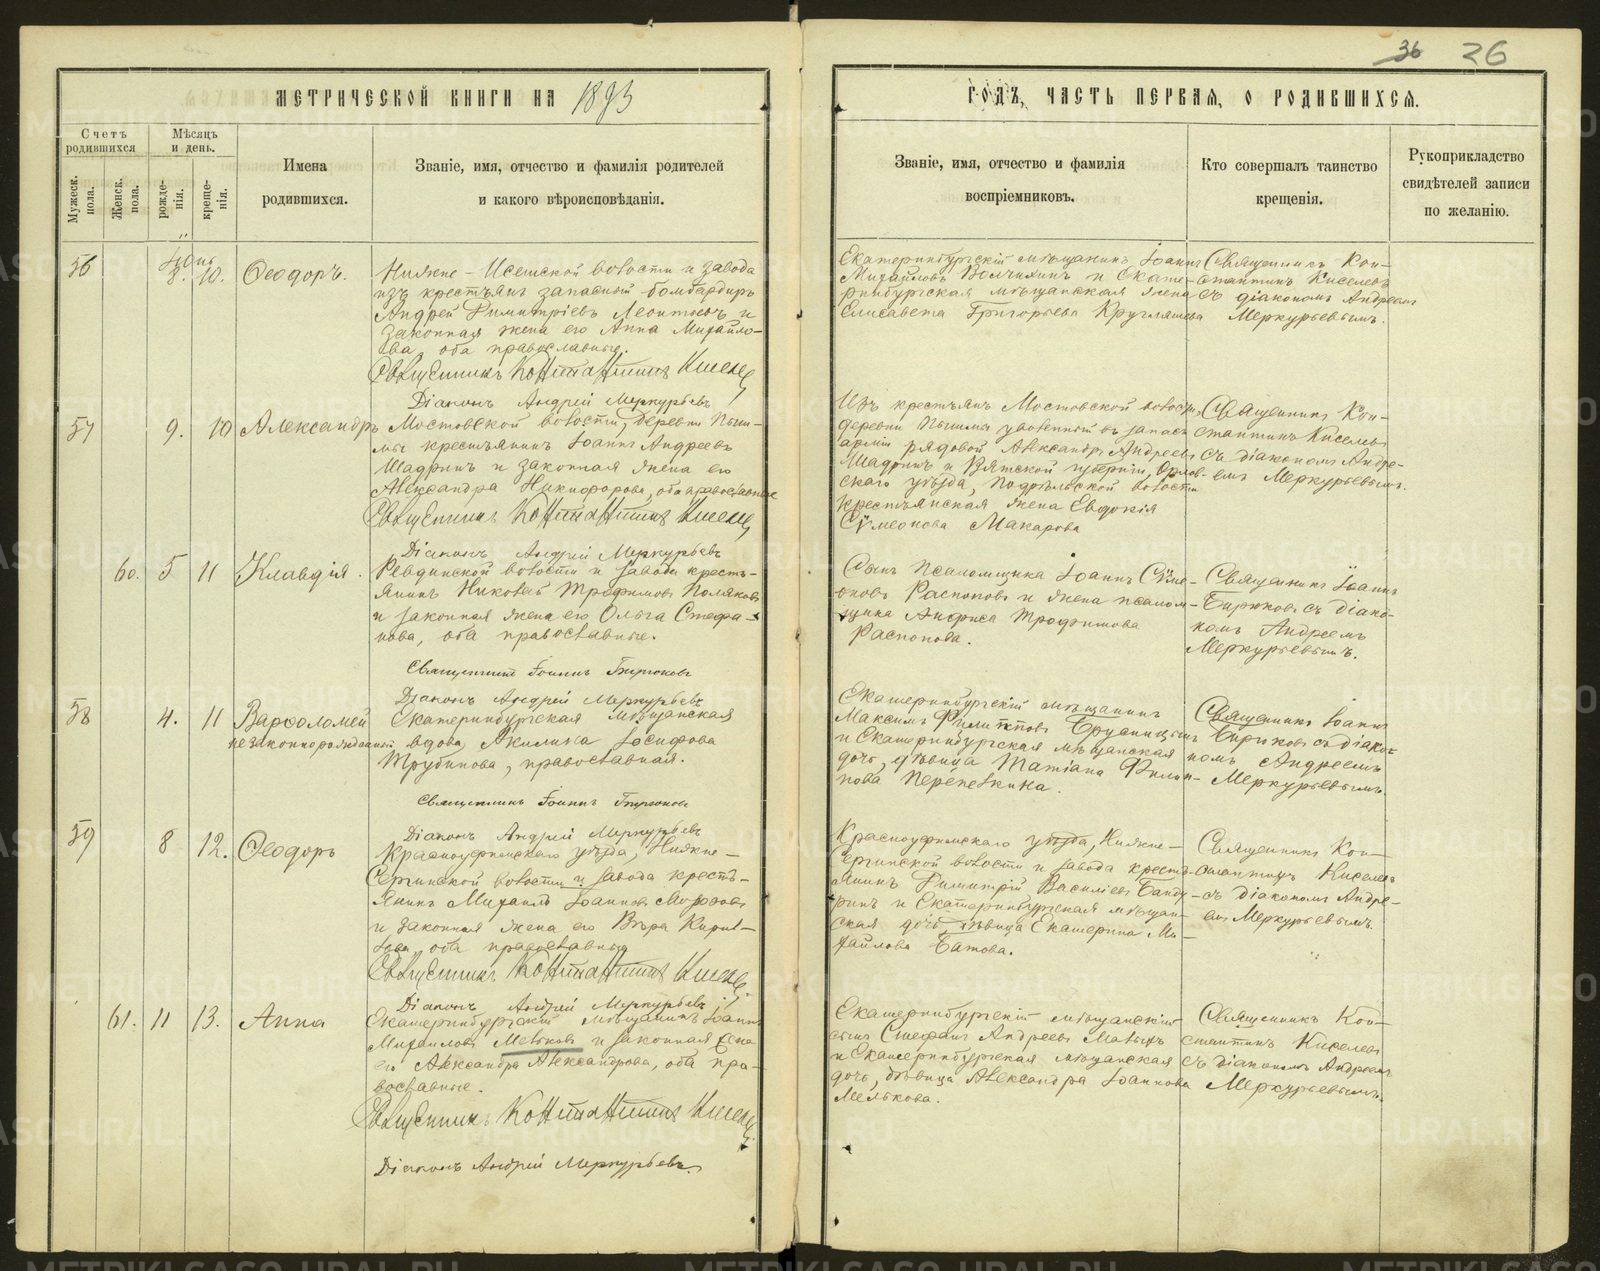 36 26
МЕТРИЧЕСКОЙ КНИГИ НА 1893
ГОДЪ, ЧАСТЬ ПЕРВАЯ, О РОДИВШИХСЯ.
Счетъ родившихся
Мужеск. пола.
Женск. пола.
Мѣсяцъ и день.
рожде-нія.
креще-нія.
Имена
родившихся.
Званіе, имя, отчество и фамилія родителей
и какого вѣроисповѣданія.
Званіе, имя, отчество и фамилія
воспріемниковъ.
Кто совершалъ таинство
крещенія.
Рукоприкладство
свидѣтелей записи
по желанію.
56
Іюнь
8. 10.
Ѳеодоръ.
Нижне-Исетской волости и завода
изъ крестьянъ запасный бомбардиръ
Андрей Димитріевъ Леонтьевъ и
законная жена его Анна Михайло-
ва, оба православные.
Священникъ Константинъ Киселевъ
Діаконъ Андрей Меркурьевъ
Екатеринбургскій мѣщанинъ Іоаннъ
Михайловъ Волчихинъ и Екате-
ринбургская мѣщанская жена
Елисавета Григорьева Кругляшева
Священникъ Кон-
стантинъ Киселевъ
съ діакономъ Андреемъ
Меркурьевымъ.
57 9. 10 Александръ
Мостовской волости, деревни Пыш-
мы крестьянинъ Іоаннъ Андреевъ
Шадринъ и законная жена его
Александра Никифорова, оба православные
Священникъ Константинъ Киселевъ
Діаконъ Андрей Меркурьевъ
Изъ крестьянъ Мостовской волости,
деревни Пышмы уволенный въ запасъ
арміи рядовой Александръ Андреевъ
Шадринъ и Вятской губерніи, Орлов-
скаго уѣзда, Подрѣльской волости
крестьянская жена Евдокія
Сѵмеонова Макарова
Священникъ Кон-
стантинъ Киселевъ
съ діакономъ Андре-
емъ Меркурьевымъ.
60. 5 11 Клавдія.
Ревдинской волости и завода кресть-
янинъ Николай Трофимовъ Поляковъ
и законная жена его Ольга Стефа-
нова, оба православные.
Священникъ Іоаннъ Бирюковъ
Діаконъ Андрей Меркурьевъ
Сынъ псаломщика Іоаннъ Сѵме-
оновъ Распоповъ и жена псалом-
щика Анфиса Трофимова
Распопова.
Священникъ Іоаннъ
Бирюковъ съ діако-
номъ Андреемъ
Меркурьевымъ.
58 4. 11 Варѳоломей
незаконнорожденный
Екатеринбургская мѣщанская
вдова, Акилина Іосифова
Трубинова, православная.
Священникъ Іоаннъ Бирюковъ
Діаконъ Андрей Меркурьевъ
Екатеринбургскій мѣщанинъ
Максимъ Филипповъ Брусницынъ
и Екатеринбургская мѣщанская
дочь, дѣвица Татіана Филип-
пова Перепелкина.
Священникъ Іоаннъ
Бирюковъ съ діако-
номъ Андреемъ
Меркурьевымъ.
59 8 12. Ѳеодоръ
Красноуфимскаго уѣзда, Нижне-
Сергинской волости и завода кресть-
янинъ Михаилъ Іоанновъ Морозовъ
и законная жена его Вѣра Кирил-
лова, оба православные
Священникъ Константинъ Киселевъ.
Діаконъ Андрей Меркурьевъ.
Красноуфимскаго уѣзда, Нижне-
Сергинской волости и завода кресть-
янинъ Димитрій Василіевъ Банду-
ринъ и Екатеринбургская мѣщан-
ская дочь, дѣвица Екатерина Ми-
хайлова Батова.
Священникъ Кон-
стантинъ Киселевъ
съ діакономъ Андре-
емъ Меркурьевымъ.
61. 11 13. Анна
Екатеринбургскій мѣщанинъ Іоаннъ
Михаиловъ Мельковъ и законная жена
его Александра Александрова, оба пра-
вославные.
Священникъ Константинъ Киселевъ
Діаконъ Андрей Меркурьевъ.
Екатеринбургскій мѣщанскій
сынъ Стефанъ Андреевъ Малыхъ
и Екатеринбургская мѣщанская
дочь, дѣвица Александра Іоаннова
Мелькова.
Священникъ Кон-
стантинъ Киселевъ
съ діакономъ Андреемъ
Меркурьевымъ.
METRIKI.GASO-URAL.RU